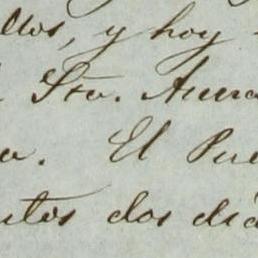 llos, y hoy
Sto. Auro
o. El Pue
utos dos día